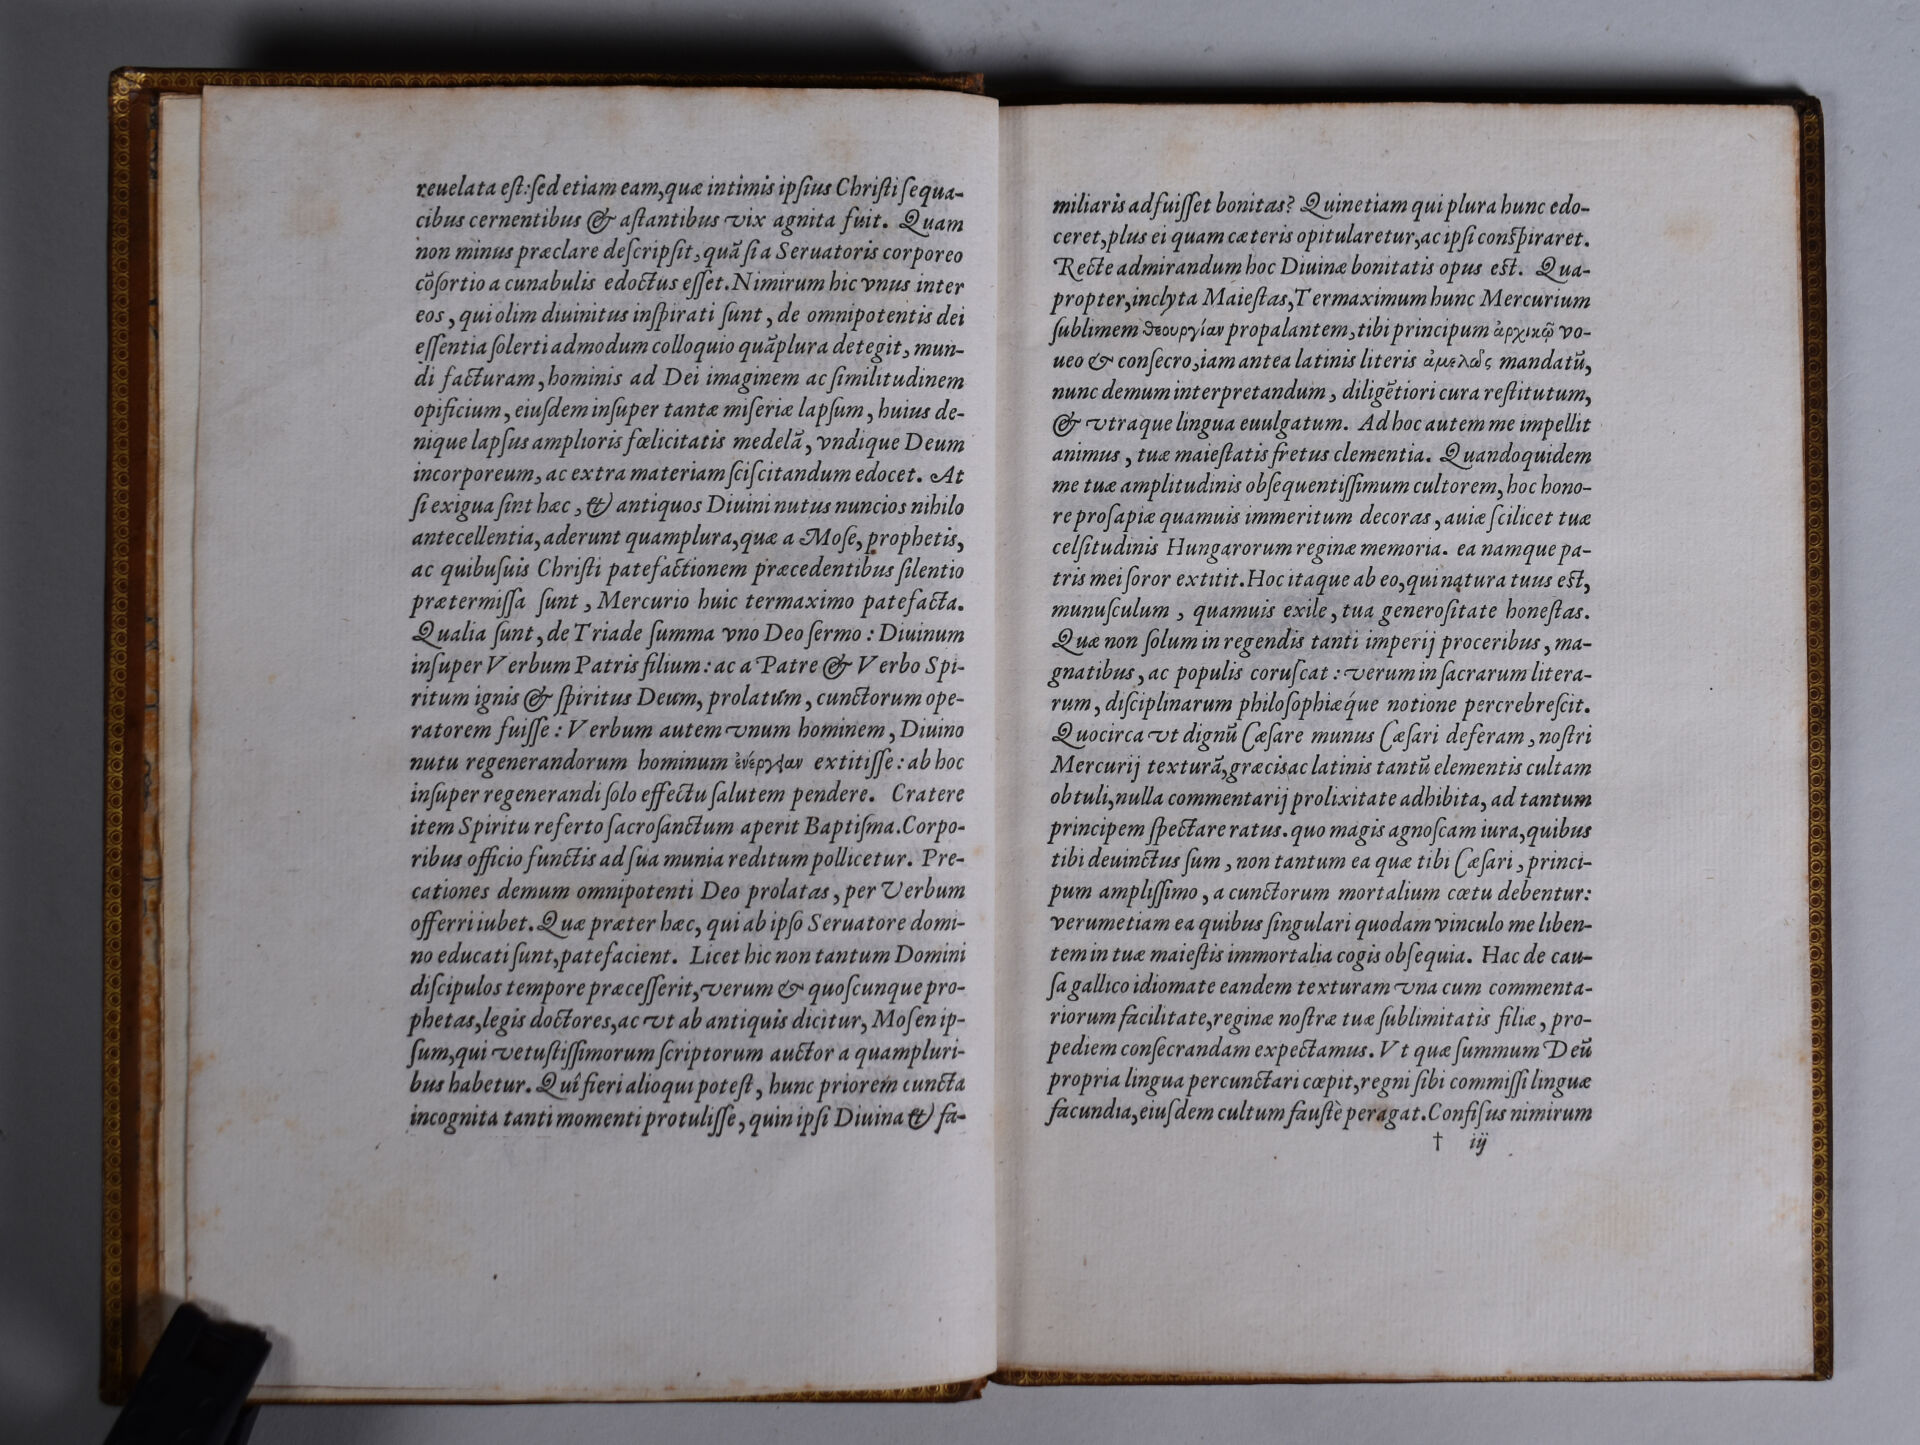 reuelata eſt: ſed etiam eam, quæ intimis ipſius Chriſti ſequa-
cibus cernentibus & aſtantibus vix agnita fuit. Quam
non minus præclare deſcripſit, quã ſi a Seruatoris corporeo
cõſortio a cunabulis edoctus eſſet. Nimirum hic vnus inter
eos, qui olim diuinitus inſpirati ſunt, de omnipotentis dei
eſſentia ſolerti admodum colloquio quãplura detegit, mun-
di facturam, hominis ad Dei imaginem ac ſimilitudinem
opificium, eiuſdem inſuper tantæ miſeriæ lapſum, huius de-
nique lapſus amplioris fœlicitatis medelã, vndique Deum
incorporeum, ac extra materiam ſciſcitandum edocet. At
ſi exigua ſint hæc, & antiquos Diuini nutus nuncios nihilo
antecellentia, aderunt quamplura, quæ a Moſe, prophetis,
ac quibuſuis Chriſti patefactionem præcedentibus ſilentio
prætermiſſa ſunt, Mercurio huic termaximo patefacta.
Qualia ſunt, de Triade ſumma vno Deo ſermo: Diuinum
inſuper Verbum Patris filium: ac a Patre & Verbo Spi-
ritum ignis & ſpiritus Deum, prolatum, cunctorum ope-
ratorem fuiſſe: Verbum autem vnum hominem, Diuino
nutu regenerandorum hominum ἐνέργειαν extitiſſe: ab hoc
inſuper regenerandi ſolo effectu ſalutem pendere. Cratere
item Spiritu referto ſacroſanctum aperit Baptiſma. Corpo-
ribus officio functis ad ſua munia reditum pollicetur. Pre-
cationes demum omnipotenti Deo prolatas, per Verbum
offerri iubet. Quæ præter hæc, qui ab ipſo Seruatore domi-
no educati ſunt, patefacient. Licet hic non tantum Domini
diſcipulos tempore præceſſerit, verum & quoſcunque pro-
phetas, legis doctores, ac vt ab antiquis dicitur, Moſen ip-
ſum, qui vetuſtiſſimorum ſcriptorum auctor a quampluri-
bus habetur. Quî fieri alioqui poteſt, hunc priorem cuncta
incognita tanti momenti protuliſſe, quin ipſi Diuina & fa-
miliaris adfuiſſet bonitas? Quinetiam qui plura hunc edo-
ceret, plus ei quam cæteris opitularetur, ac ipſi conſpiraret.
Recte admirandum hoc Diuinæ bonitatis opus eſt. Qua-
propter, inclyta Maieſtas, Termaximum hunc Mercurium
ſublimem θεουργίαν propalantem, tibi principum ἀρχικῷ vo-
ueo & conſecro, iam antea latinis literis ἀμελῶς mandatũ,
nunc demum interpretandum, diligẽtiori cura reſtitutum,
& vtraque lingua euulgatum. Ad hoc autem me impellit
animus, tuæ maieſtatis fretus clementia. Quandoquidem
me tuæ amplitudinis obſequentiſſimum cultorem, hoc hono-
re proſapiæ quamuis immeritum decoras, auiæ ſcilicet tuæ
celſitudinis Hungarorum reginæ memoria. ea namque pa-
tris mei ſoror extitit. Hoc itaque ab eo, qui natura tuus eſt,
munuſculum, quamuis exile, tua generoſitate honeſtas.
Quæ non ſolum in regendis tanti imperij proceribus, ma-
gnatibus, ac populis coruſcat: verum in ſacrarum litera-
rum, diſciplinarum philoſophiæq́ue notione percrebreſcit.
Quocirca vt dignũ Cæſare munus Cæſari deferam, noſtri
Mercurij texturã, græcis ac latinis tantũ elementis cultam
obtuli, nulla commentarij prolixitate adhibita, ad tantum
principem ſpectare ratus. quo magis agnoſcam iura, quibus
tibi deuinctus ſum, non tantum ea quæ tibi Cæſari, princi-
pum ampliſſimo, a cunctorum mortalium cœtu debentur:
verumetiam ea quibus ſingulari quodam vinculo me liben-
tem in tuæ maieſtis immortalia cogis obſequia. Hac de cau-
ſa gallico idiomate eandem texturam vna cum commenta-
riorum facilitate, reginæ noſtræ tuæ ſublimitatis filiæ, pro-
pediem conſecrandam expectamus. Vt quæ ſummum Deũ
propria lingua percunctari cœpit, regni ſibi commiſſi linguæ
facundia, eiuſdem cultum fauſtè peragat. Confiſus nimirum
† iij